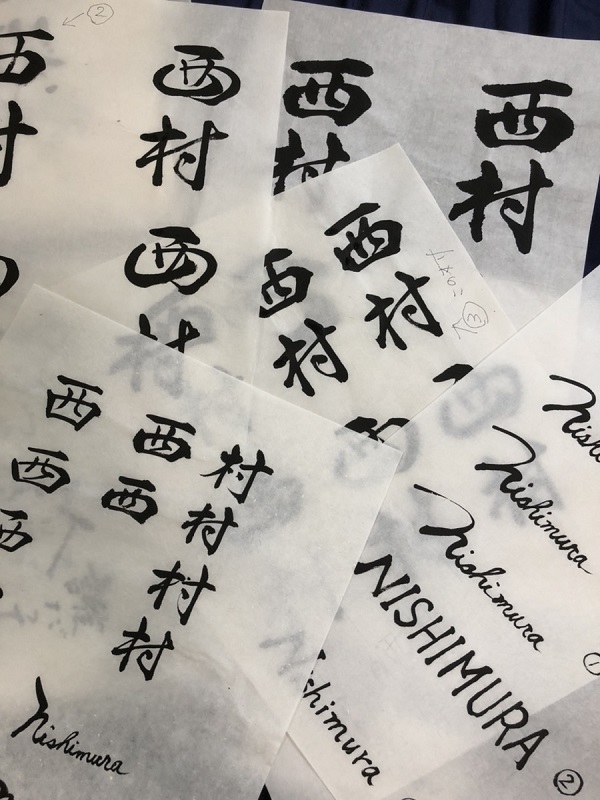 ②
西村
西村
西村
西村
西村
西村
西村
③
西西西
西西
村村村村
Nishimura
Nishimura
Nishimura
①
NISHIMURA
②
shimura